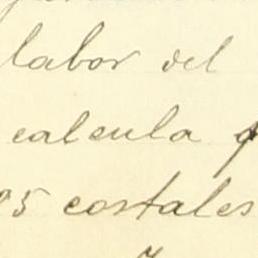 labor del
calcula
05 costales